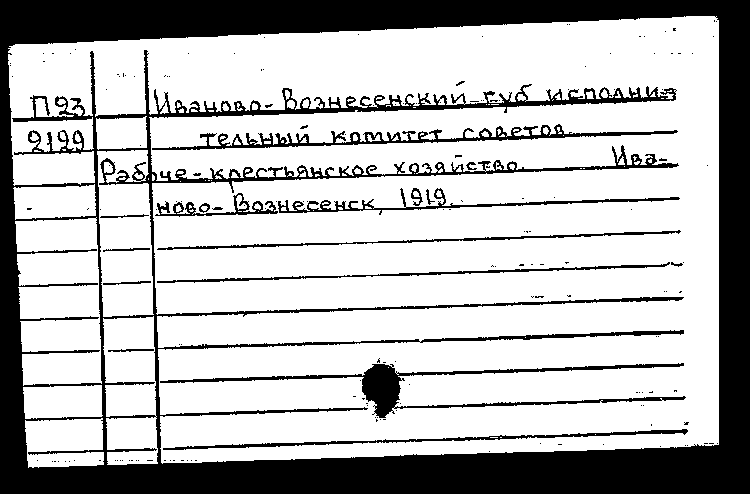 П23 Иваново-Вознесенский губ исполни-
2199 тельный комитет советов
Рабоче-крестьянское хозяйство. Ива-
ново-Вознесенск, 1919.